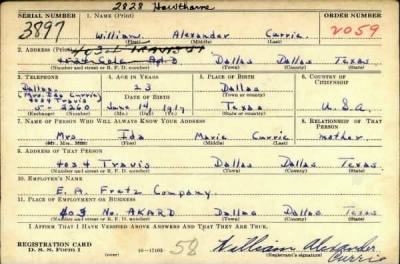 2828 Hawthorne
SERIAL NUMBER 1. NAME (Print) ORDER NUMBER
3897 William Alexander Currie 2059
(First) (Middle) (Last)
2. ADDRESS (Print)
Dallas Dallas Texas
(Number and street or R. F. D. number) (Town) (County) (State)
3. TELEPHONE 4. AGE IN YEARS 5. PLACE OF BIRTH 6. COUNTRY OF CITIZENSHIP
Dallas 23 Dallas
(Mrs. Edo Currie) DATE OF BIRTH (Town or county)
4034 Travis
5- 3260 June 14 1917 Texas U.S.A.
(Mo.) (Day) (Yr.) (State or country)
7. NAME OF PERSON WHO WILL ALWAYS KNOW YOUR ADDRESS 8. RELATIONSHIP OF THAT PERSON
Mrs. Ida Marie Currie mother
(Mr., Mrs., Miss) (First) (Middle) (Last)
9. ADDRESS OF THAT PERSON
4034 Travis Dallas Dallas Texas
(Number and street or R. F. D. number) (Town) (County) (State)
10. EMPLOYER'S NAME
E. A. Fretz Company
11. PLACE OF EMPLOYMENT OR BUSINESS
403 No. AKARD Dallas Dallas Texas
(Number and street or R. F. D. number) (Town) (County) (State)
I AFFIRM THAT I HAVE VERIFIED ABOVE ANSWERS AND THAT THEY ARE TRUE.
REGISTRATION CARD 58 William Alexander
D. S. S. FORM 1 (over) (Registrant's signature) Currie